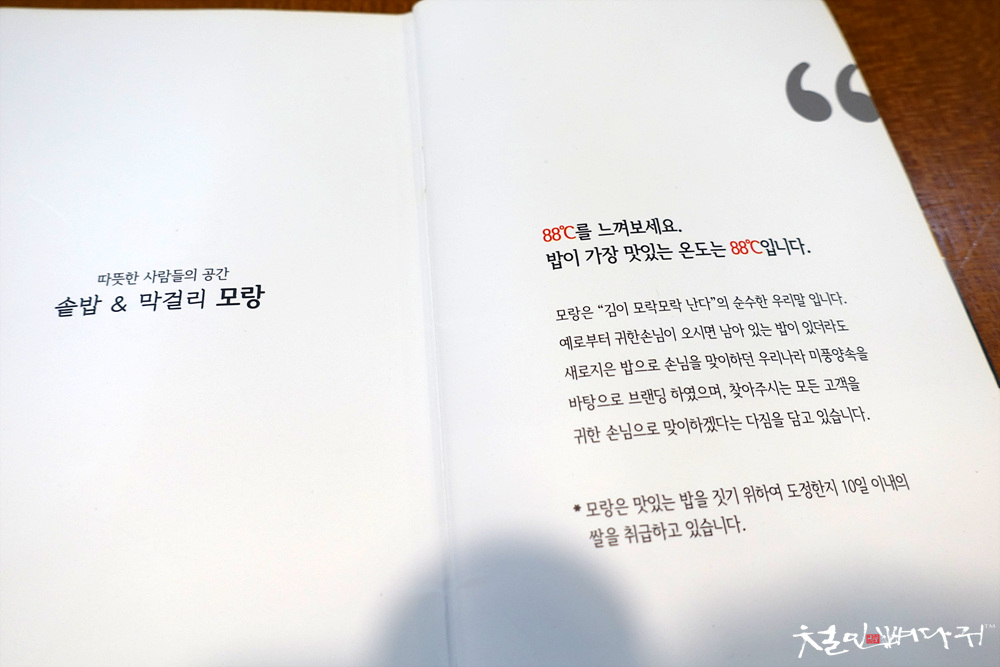 따뜻한 사람들의 공간
솥밥 & 막걸리 모랑
“
88℃를 느껴보세요.
밥이 가장 맛있는 온도는 88℃입니다.
모랑은 “김이 모락모락 난다”의 순수한 우리말 입니다.
예로부터 귀한손님이 오시면 남아 있는 밥이 있더라도
새로지은 밥으로 손님을 맞이하던 우리나라 미풍양속을
바탕으로 브랜딩 하였으며, 찾아주시는 모든 고객을
귀한 손님으로 맞이하겠다는 다짐을 담고 있습니다.
* 모랑은 맛있는 밥을 짓기 위하여 도정한지 10일 이내의
쌀을 취급하고 있습니다.